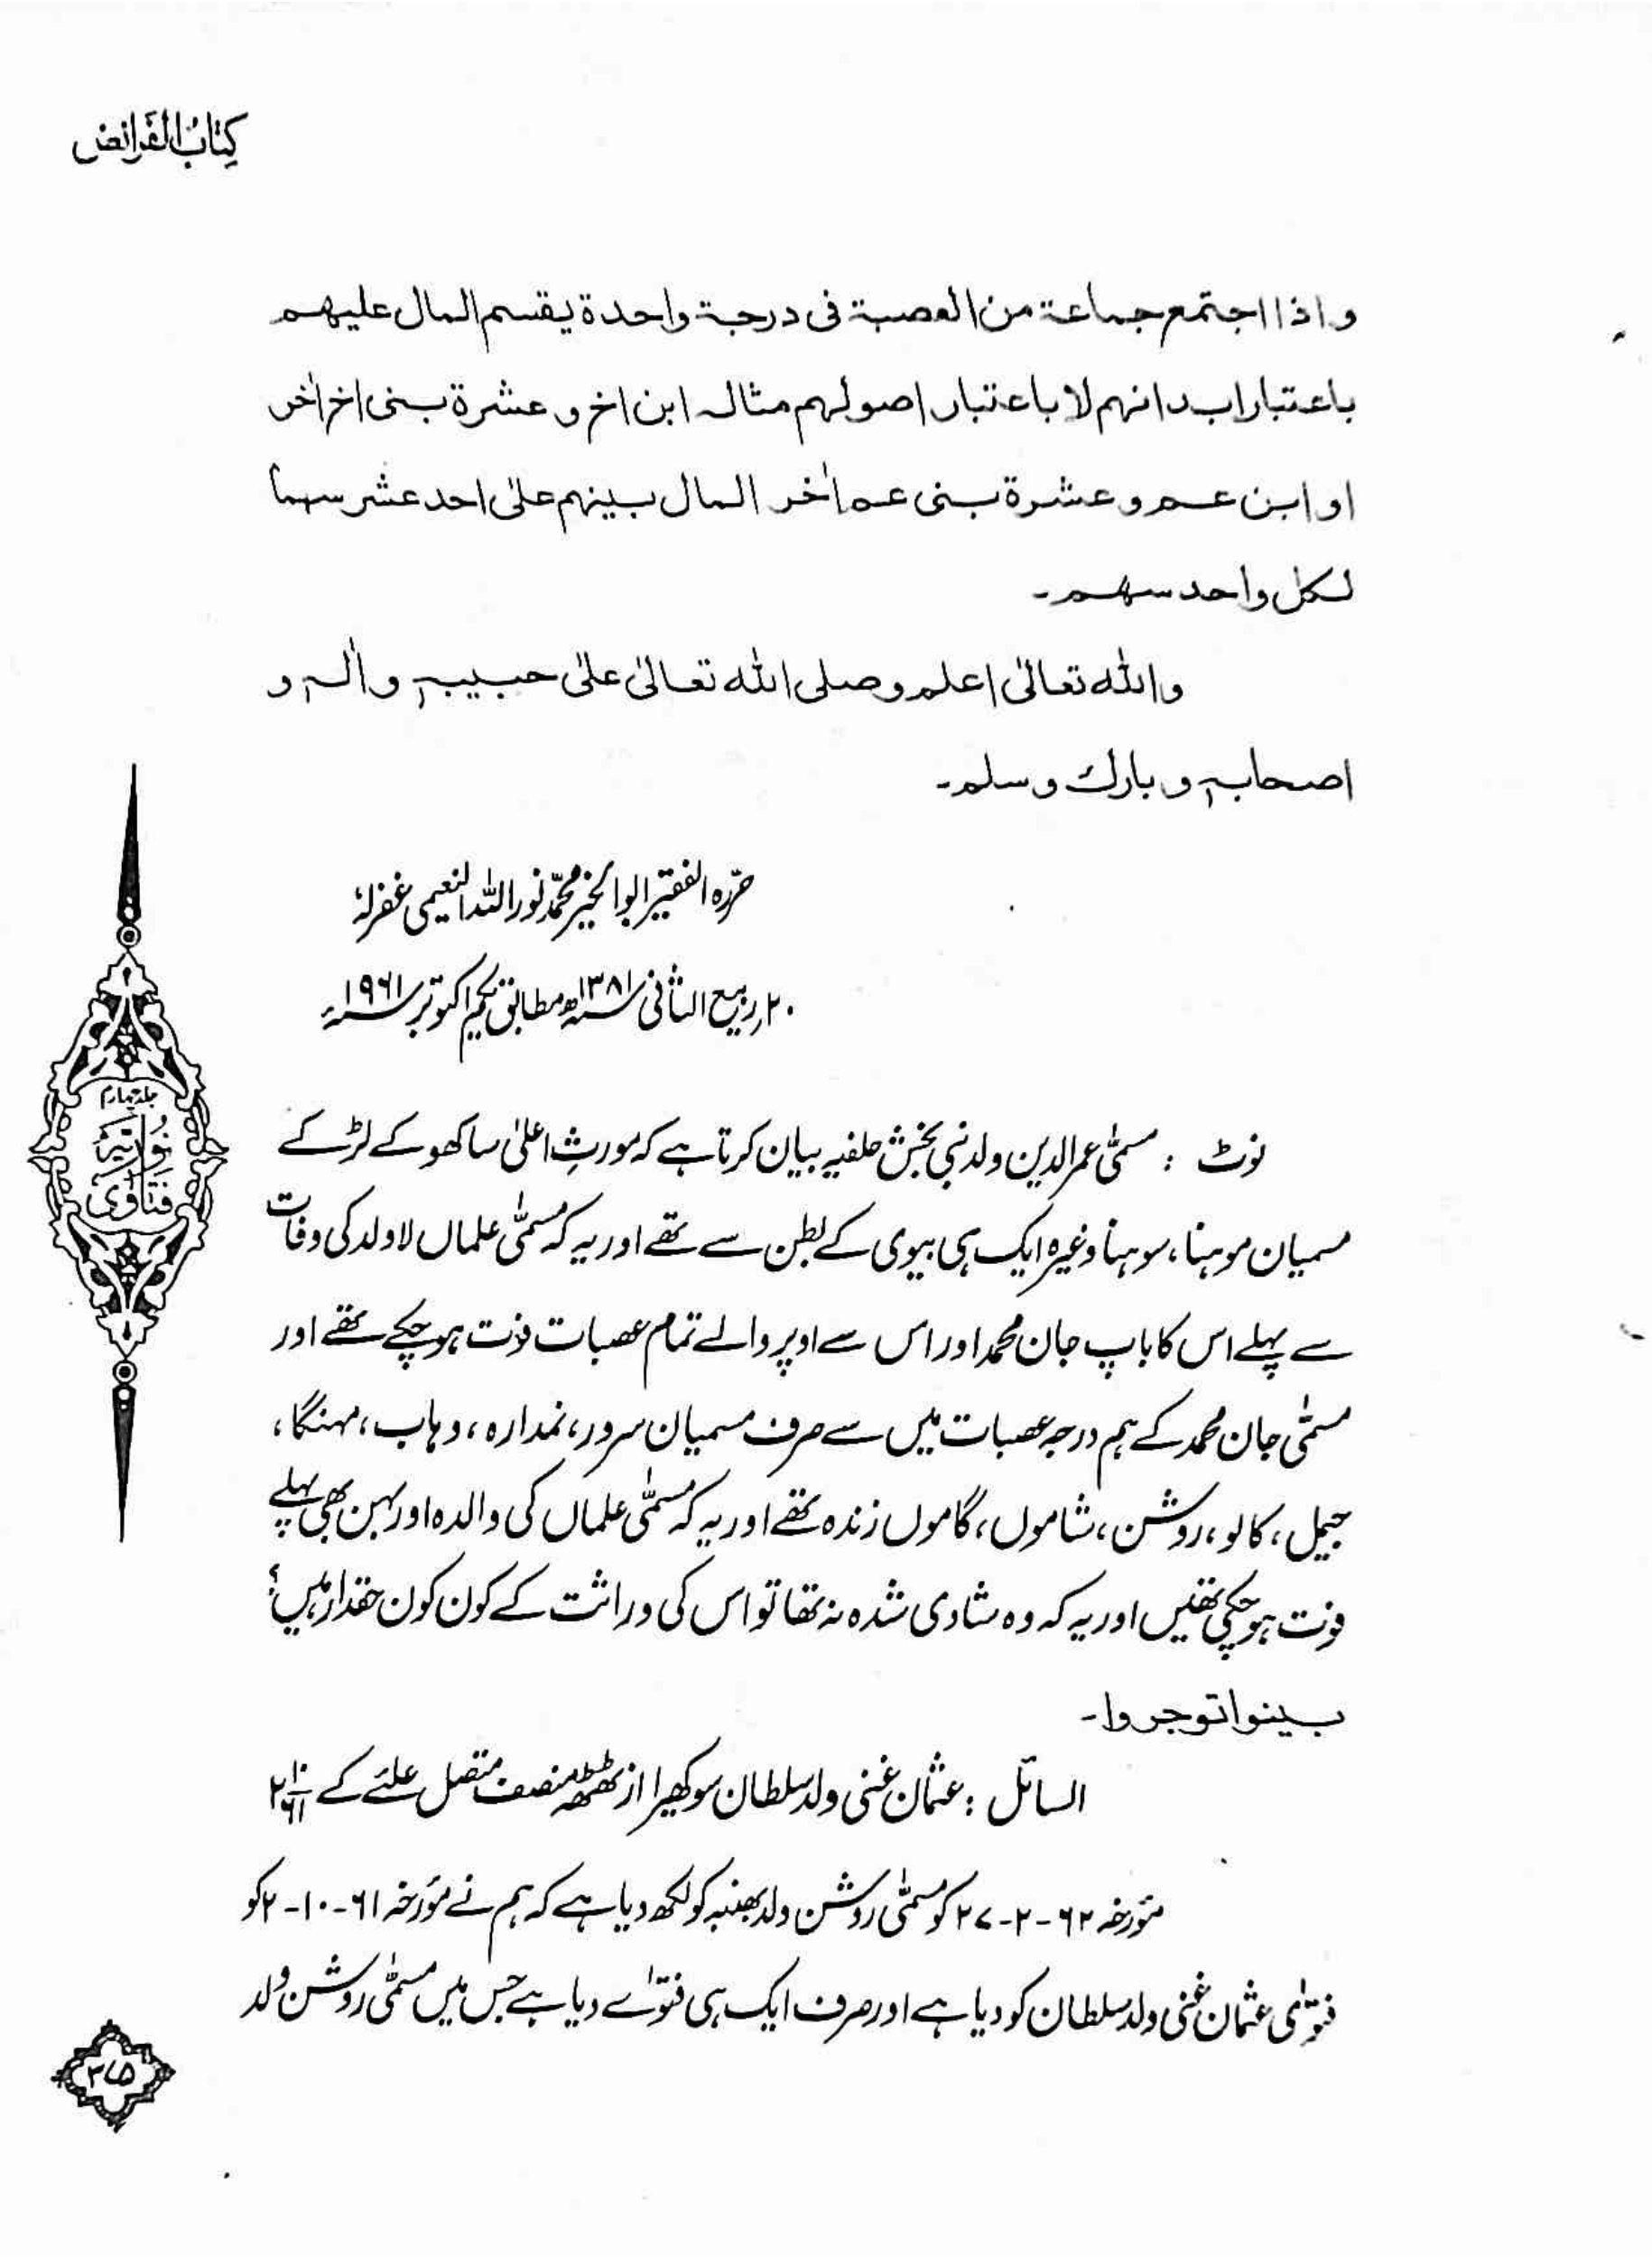 كِتَابُ الْفَرَائض
واذا اجتمع جماعة من العصبة فى درجة واحدة يقسم المال عليهم
باعتبار ابدانهم لا باعتبار اصولهم مثاله ابن اخ و عشرة بنى اخ اٰخر
او ابن عم و عشرة بنى عم اٰخر المال بينهم علىٰ احد عشر سهما
لكل واحد سهم۔
والله تعالىٰ اعلم وصلى الله تعالىٰ علىٰ حبيبهٖ واٰلهٖ و
اصحابهٖ و بارك وسلم۔
حرّرہ الفقیر ابوالخیر محمّد نور اللہ النعیمی غفرلہٗ
۲۰ ربیع الثانی ۱۳۸۱ھ مطابق یکم اکتوبر ۱۹۶۱ء
نوٹ : مسمّٰی عمرالدین ولد نبی بخش حلفیہ بیان کرتا ہے کہ مورثِ اعلیٰ ساکھو کے لڑکے
مسمیان موہنا، سوہنا وغیرہ ایک ہی بیوی کے بطن سے تھے اور یہ کہ مسمّٰی علماں لاولد کی وفات
سے پہلے اس کا باپ جان محمد اور اس سے اوپر والے تمام عصبات فوت ہو چکے تھے اور
مسمّٰی جان محمد کے ہم درجہ عصبات میں سے صرف مسمیان سرور، نمدارہ، وہاب، مہنگا،
جیمل، کالو، روشن، شاموں، گاموں زندہ تھے اور یہ کہ مسمّٰی علماں کی والدہ اور بہن بھی پہلے
فوت ہو چکی تھیں اور یہ کہ وہ شادی شدہ نہ تھا تو اس کی وراثت کے کون کون حقدار ہیں؟
بینوا توجروا۔
السائل : عثمان غنی ولد سلطان سوکھیرا از ٹھٹھہ منصف متصل علئے کے
مؤرخہ ۶۲-۲-۲۷ کو مسمّٰی روشن ولد بھنبہ کو لکھ دیا ہے کہ ہم نے مؤرخہ ۶۱-۱۰-۲ کو
فتوٰی عثمان غنی ولد سلطان کو دیا ہے اور صرف ایک ہی فتوٰے دیا ہے جس میں مسمّٰی روشن ولد
جلد چہارم
نُورِیَّہ
فَتَاوٰی